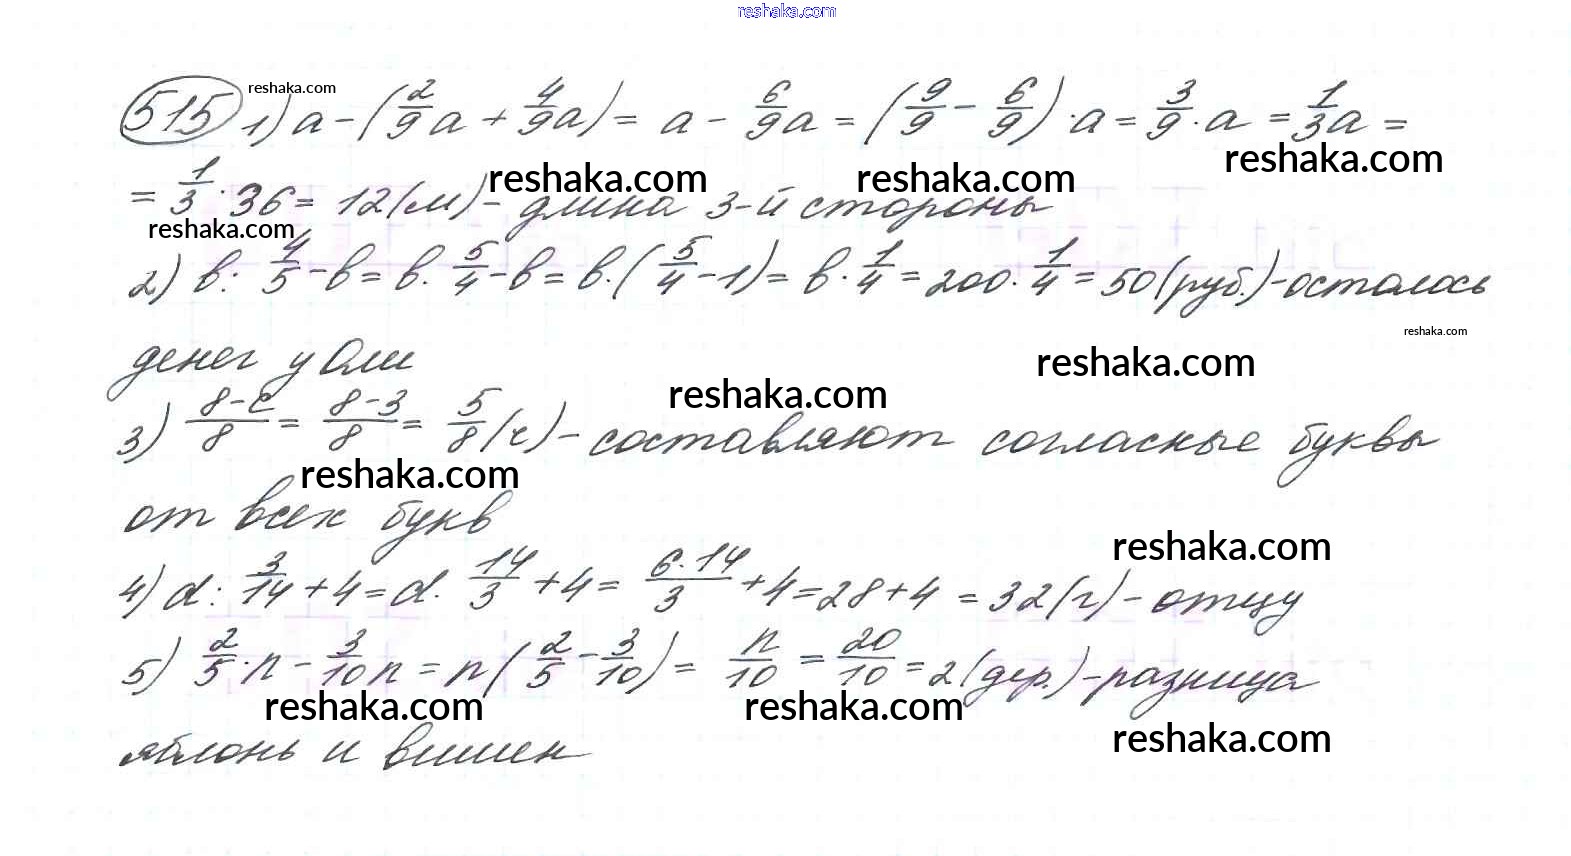 reshaka.com
515 reshaka.com 1) a - (2/9 a + 4/9 a) = a - 6/9 a = (9/9 - 6/9) · a = 3/9 · a = 1/3 a =
reshaka.com
= 1/3 · 36 = 12 (м) - длина 3-й стороны
reshaka.com reshaka.com
reshaka.com
2) в : 4/5 - в = в · 5/4 - в = в · (5/4 - 1) = в · 1/4 = 200 · 1/4 = 50 (руб.) - осталось
reshaka.com
денег у Оли
reshaka.com
reshaka.com
3) 8-с/8 = 8-3/8 = 5/8 (ч) - составляют согласные буквы
reshaka.com
от всех букв
reshaka.com
4) d : 3/14 + 4 = d · 14/3 + 4 = 6·14/3 + 4 = 28 + 4 = 32 (г) - отцу
5) 2/5 · n - 3/10 n = n (2/5 - 3/10) = n/10 = 20/10 = 2 (дер.) - разница
reshaka.com reshaka.com
reshaka.com
яблонь и вишен